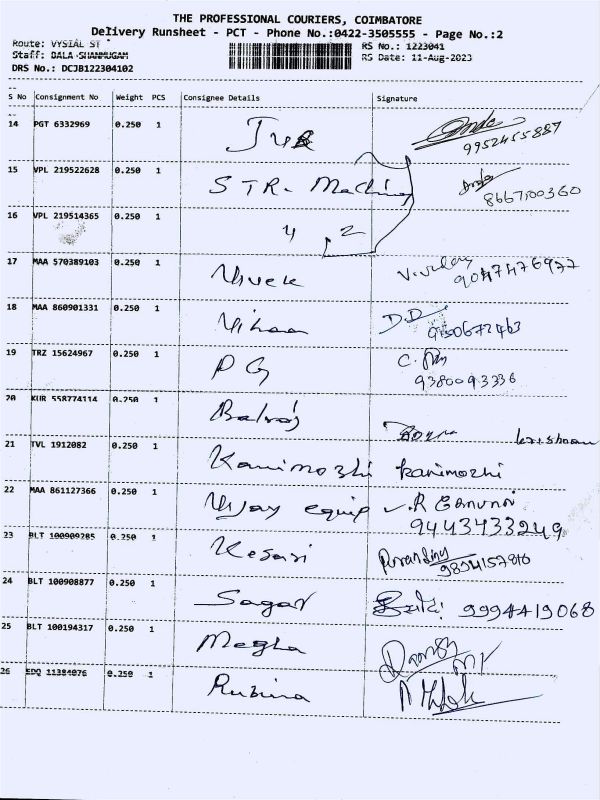 THE PROFESSIONAL COURIERS, COIMBATORE
Delivery Runsheet - PCT - Phone No.:0422-3505555 - Page No.:2
Route: VYSIAL ST
Staff: BALA SHANMUGAM
DRS No.: DCJB122304102
RS No.: 1223041
RS Date: 11-Aug-2023
S No Consignment No Weight PCS Consignee Details Signature
14 PGT 6332969 0.250 1
9952455887
15 VPL 219522628 0.250 1 STR- Machinig
8667100360
16 VPL 219514365 0.250 1 4, 2
17 MAA 570389103 0.250 1 Vivek
9047476977
18 MAA 860901331 0.250 1 Vihaan D.D
9500672463
19 TRZ 15624967 0.250 1 P G
9380093336
20 KUR 558774114 0.250 1 Balraj
21 TVL 1912082 0.250 1 Kanimozhi kanimozhi
22 MAA 861127366 0.250 1 Vijay equip
9443433249
23 BLT 100909285 0.250 1 Kesari
9894157810
24 BLT 100908877 0.250 1 Sagar 9994419068
25 BLT 100194317 0.250 1 Megha
26 EDQ 11384076 0.250 1 Rubina